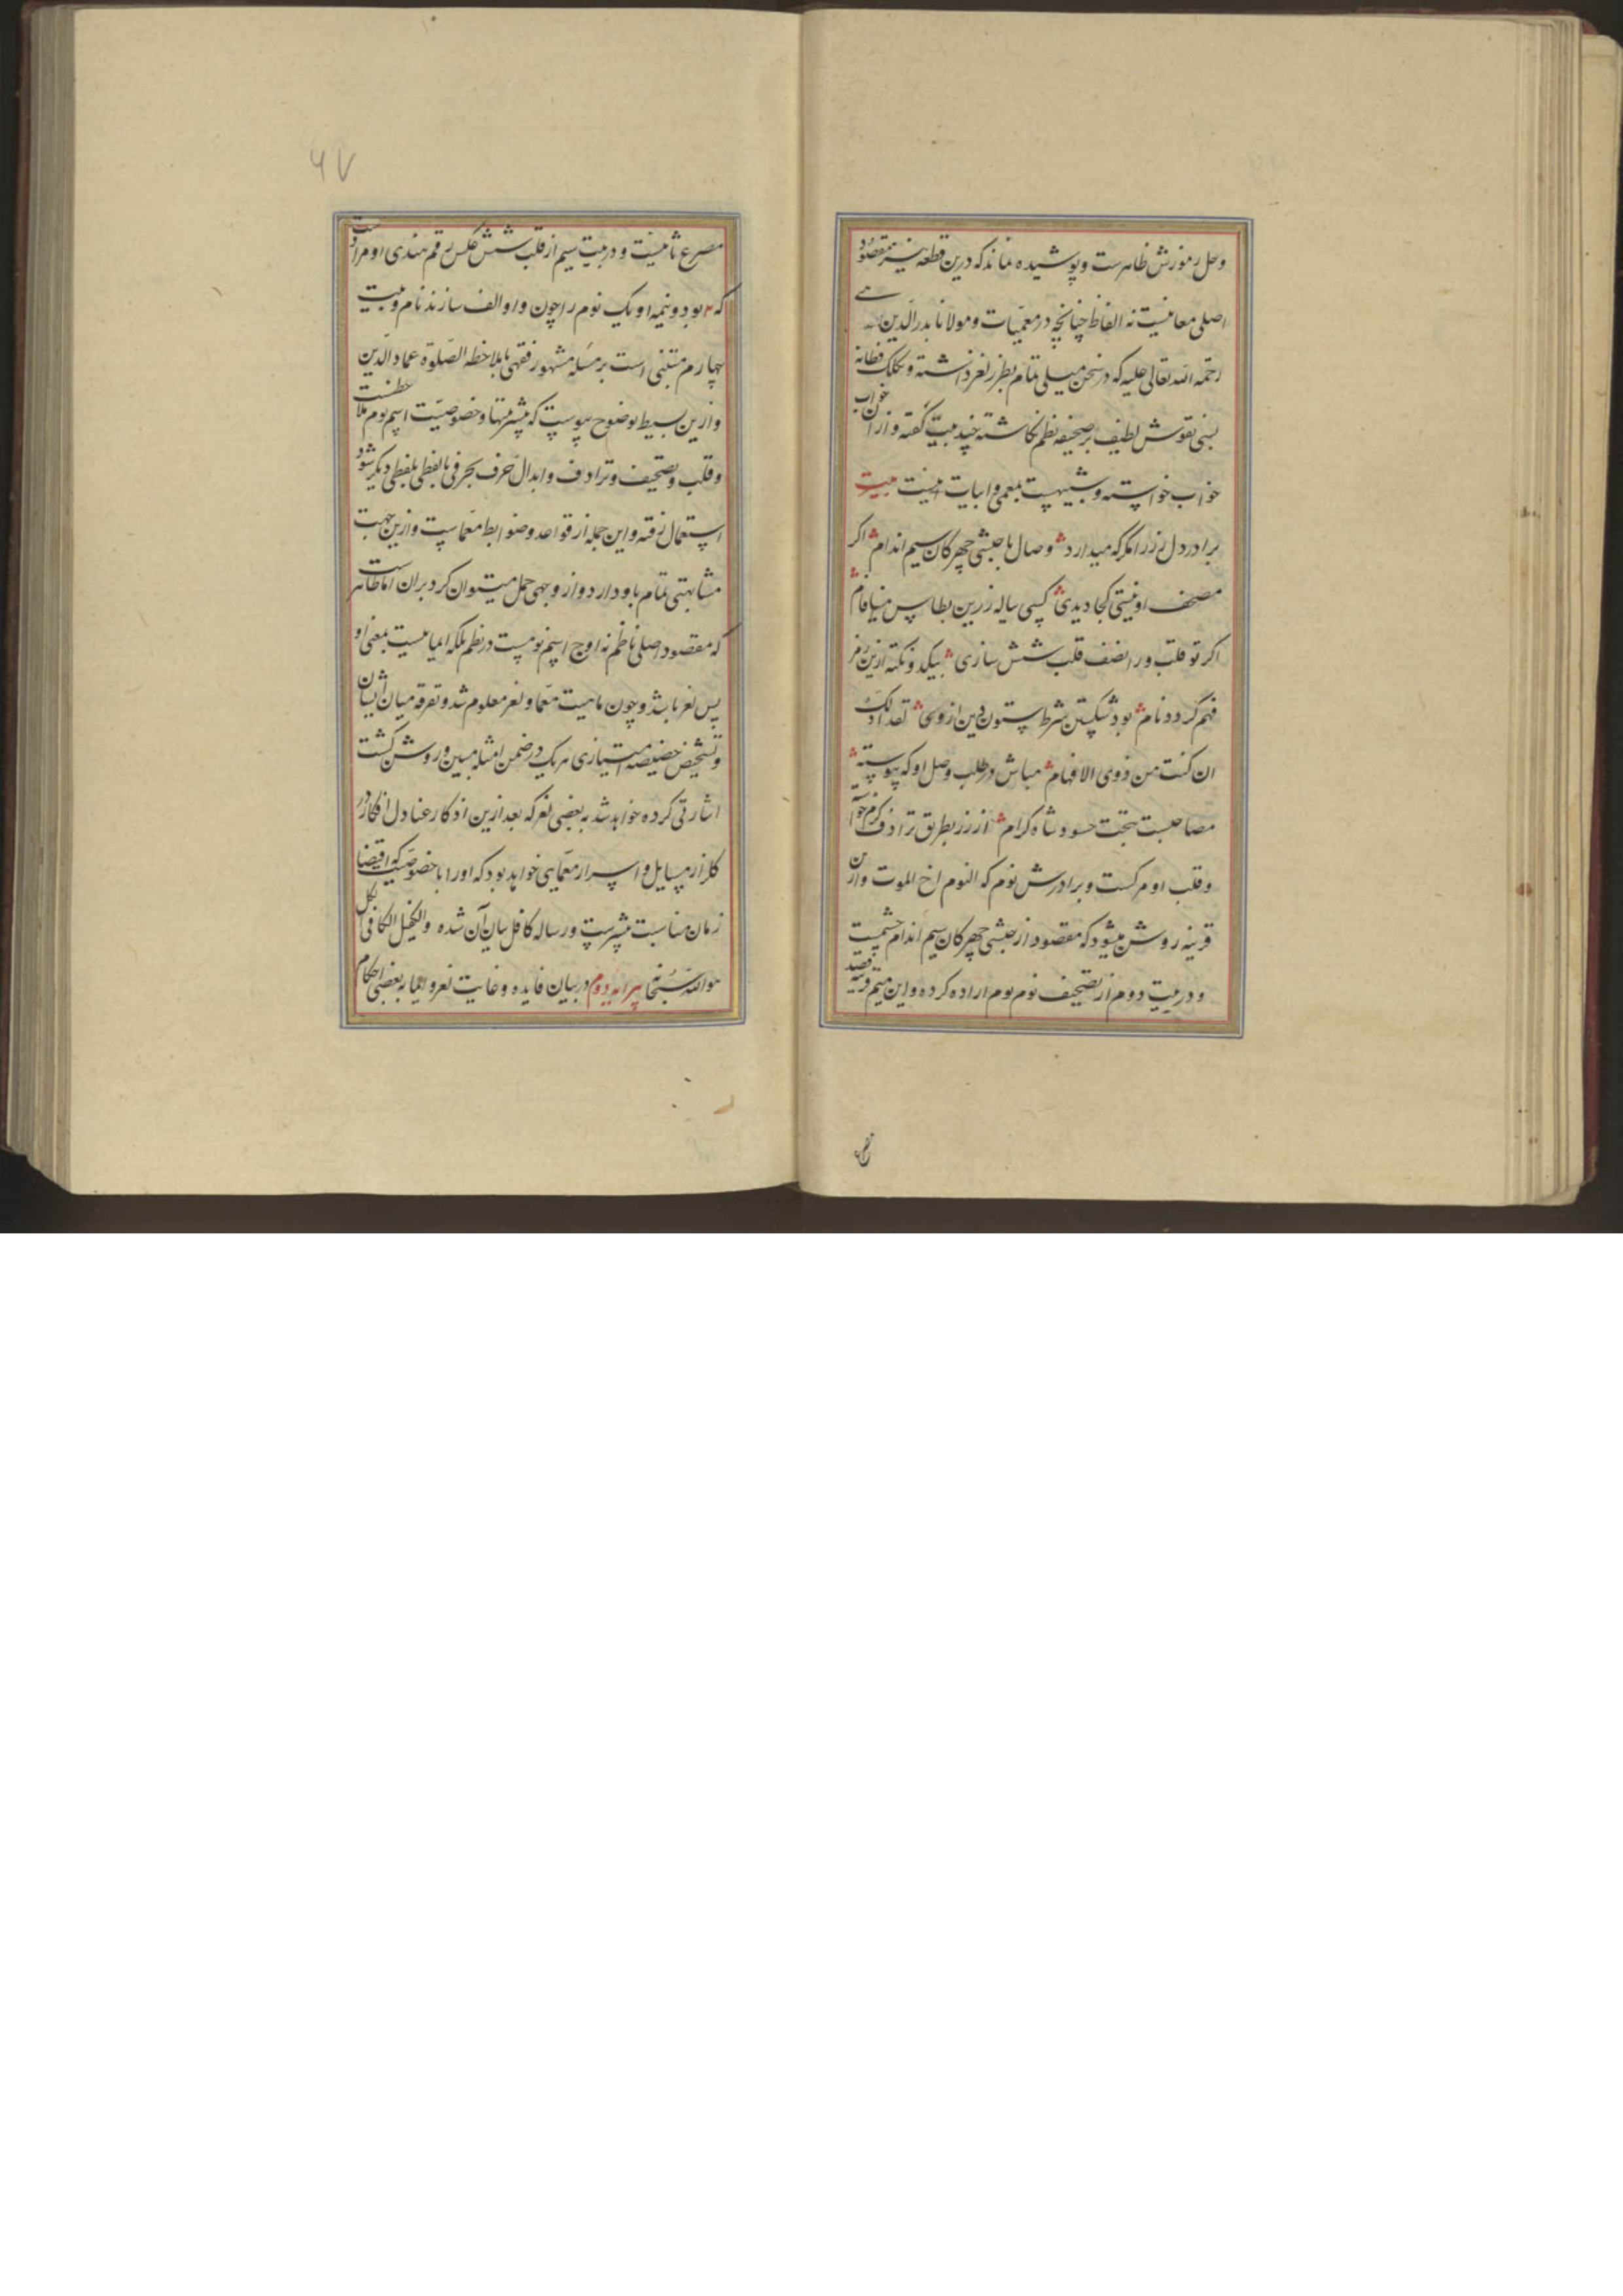 وحل رموزش ظاهرست و پوشیده نماند که درین قطعه نیز مقصود
اصلی معانیست نه الفاظ چنانچه در معمیات و مولانا بدرالدین
رحمه الله تعالی علیه که در سخن میلی تمام بطرز لغز داشته و بکلک فطانه
بسی نقوش لطیف بر صحیفه نظم نکاشته چند بیت کفته و ازان خواب
خواب خواسته و شبیهست بمعمی و ابیات اینست بیت
برادر دل زر امکر که میدارد وصال با حبشی چهرکان سیم اندام اکر
مصحف او نیستی کجا دیدی کسی پیاله زرین بطاس مینا فام
اکر تو قلب ورا نصف قلب شش سازی بیکدو نکته ازین رمز
فهم کردد نام بود شکستن شرط ستون دین از وی تعد ذلک
ان کنت من ذوی الافهام مباش در طلب وصل او که پیوسته
مصاحبست ببخت حسود شاه کرام از رز بطریق ترادف کرم خواسته
وقلب او مرکست و برادرش نوم که النوم اخ الموت وازین
قرینه روشن میشود که مقصود از حبشی چهرکان سیم اندام چشمست
و در بیت دوم از تصحیف نوم بوم اراده کرده و این میم قرینه
مصرع ثانیست و در بیت سیم از قلب شش عکس رقم هندی او مرادست
که ۲ بود و نیمه او یک نوم را چون واو الف سازند نام و بیت
چهارم مبتنی است بر مسئله مشهور فقهی بملاحظه الصلوة عماد الدین
وازین بسیط بوضوح پیوست که بیشتر بیتها و خصوصیت اسم نوم ملاحظست
وقلب و تصحیف و ترادف وابدال حرف بحرفی یا لفظی بلفظی دیکر شود
استعمال رفته و این جمله از قواعد و ضوابط معماست وازین جهت
مشابهتی تمام باو دارد و از وجهی حمل میتوان کرد بران اما ظاهر است
که مقصود اصلی ناظم نه اوج اسم نومست در نظم بلکه ایمائیست بمعنی او
پس لغز باشد و چون ماهیت معما و لغز معلوم شد و تفرقه میان ایشان
و تشخیص خصیصه امتیازی هریک در ضمن امثله مبین و روشن کشت
اشارتی کرده خواهد شد به بعضی لغز که بعد ازین اذکار عنادل افکار در
کلزار مسایل و اسرار معمایی خواهد بود که اورا با خصوصیتی که اقتضا
زمان مناسبت بیشترست و رساله کافل بیان آن شده والکفیل الکافی لکل
هو الله سبحانه پیرایه دوم در بیان فایده و غایت لغز و ایما به بعضی احکام